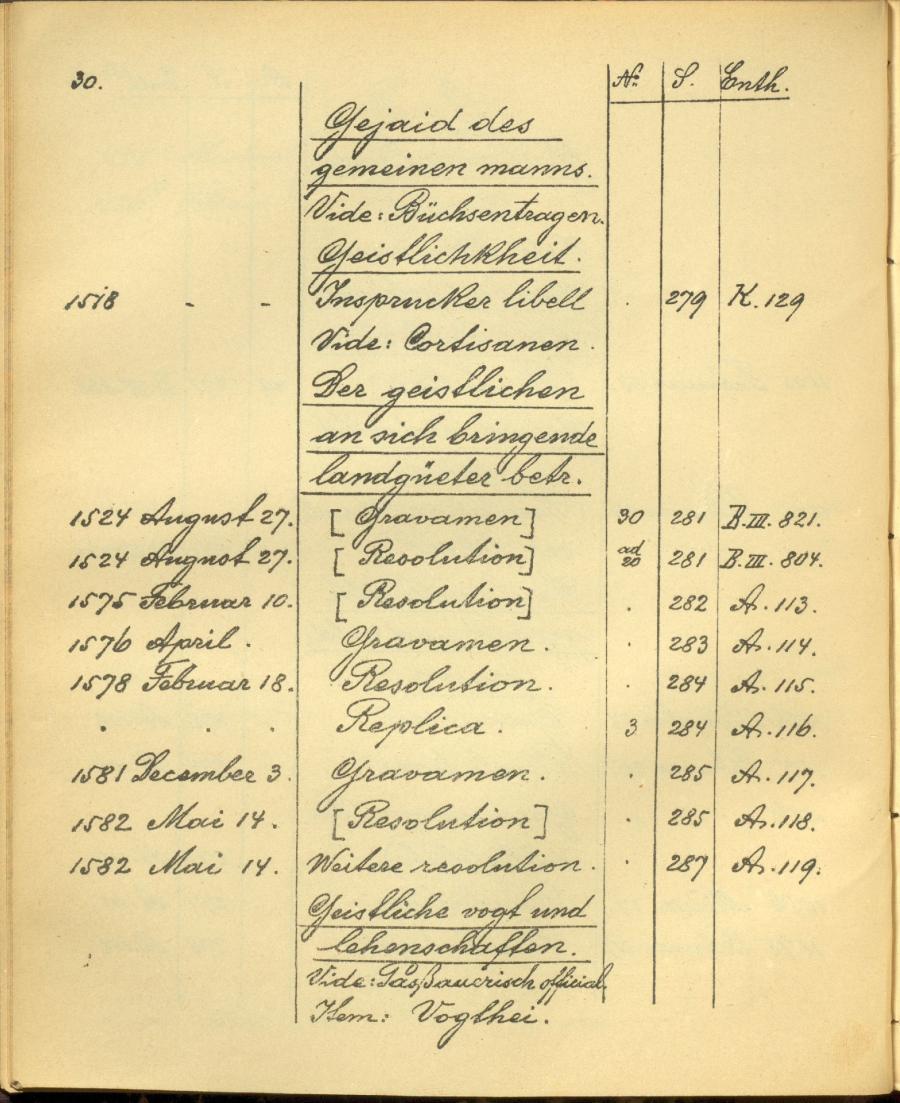 30. Nº S. Enth.
Gejaid des
gemeinen manns.
Vide: Büchsentragen.
Geistlichkheit.
1518 - - Insprucker libell . 279 K. 129
Vide: Cortisanen.
Der geistlichen
an sich bringende
landgüeter betr.
1524 August 27. [Gravamen] 30 281 B. III. 821.
1524 August 27. [Resolution] ad 20 281 B. III. 804.
1575 Februar 10. [Resolution] . 282 A. 113.
1576 April. Gravamen. . 283 A. 114.
1578 Februar 18. Resolution. . 284 A. 115.
. . . Replica. 3 284 A. 116.
1581 December 3. Gravamen. . 285 A. 117.
1582 Mai 14. [Resolution] . 285 A. 118.
1582 Mai 14. Weitere resolution. . 287 A. 119.
Geistliche vogt und
lehenschaften.
Vide: Paßauerisch official.
Item: Vogthei.